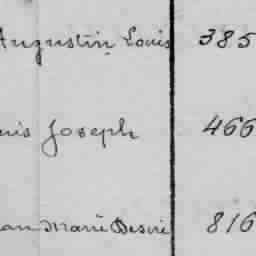 Augustin Louis 385
uis Joseph 466
an Marie Desiré 816